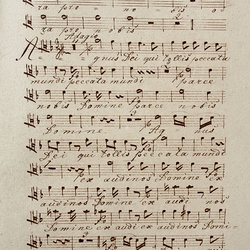 ra pro - no - bis
ra pro nobis
Adagio
Agnus Dei qui tollis peccata
mundi peccata mundi Parce
nobis Domine Parce nobis
Domine Ag nus
Dei qui tollis peccata mundi
ex audinos Domine ex
audinos Domine ex audi
nos ex audi ex audinos Domi-